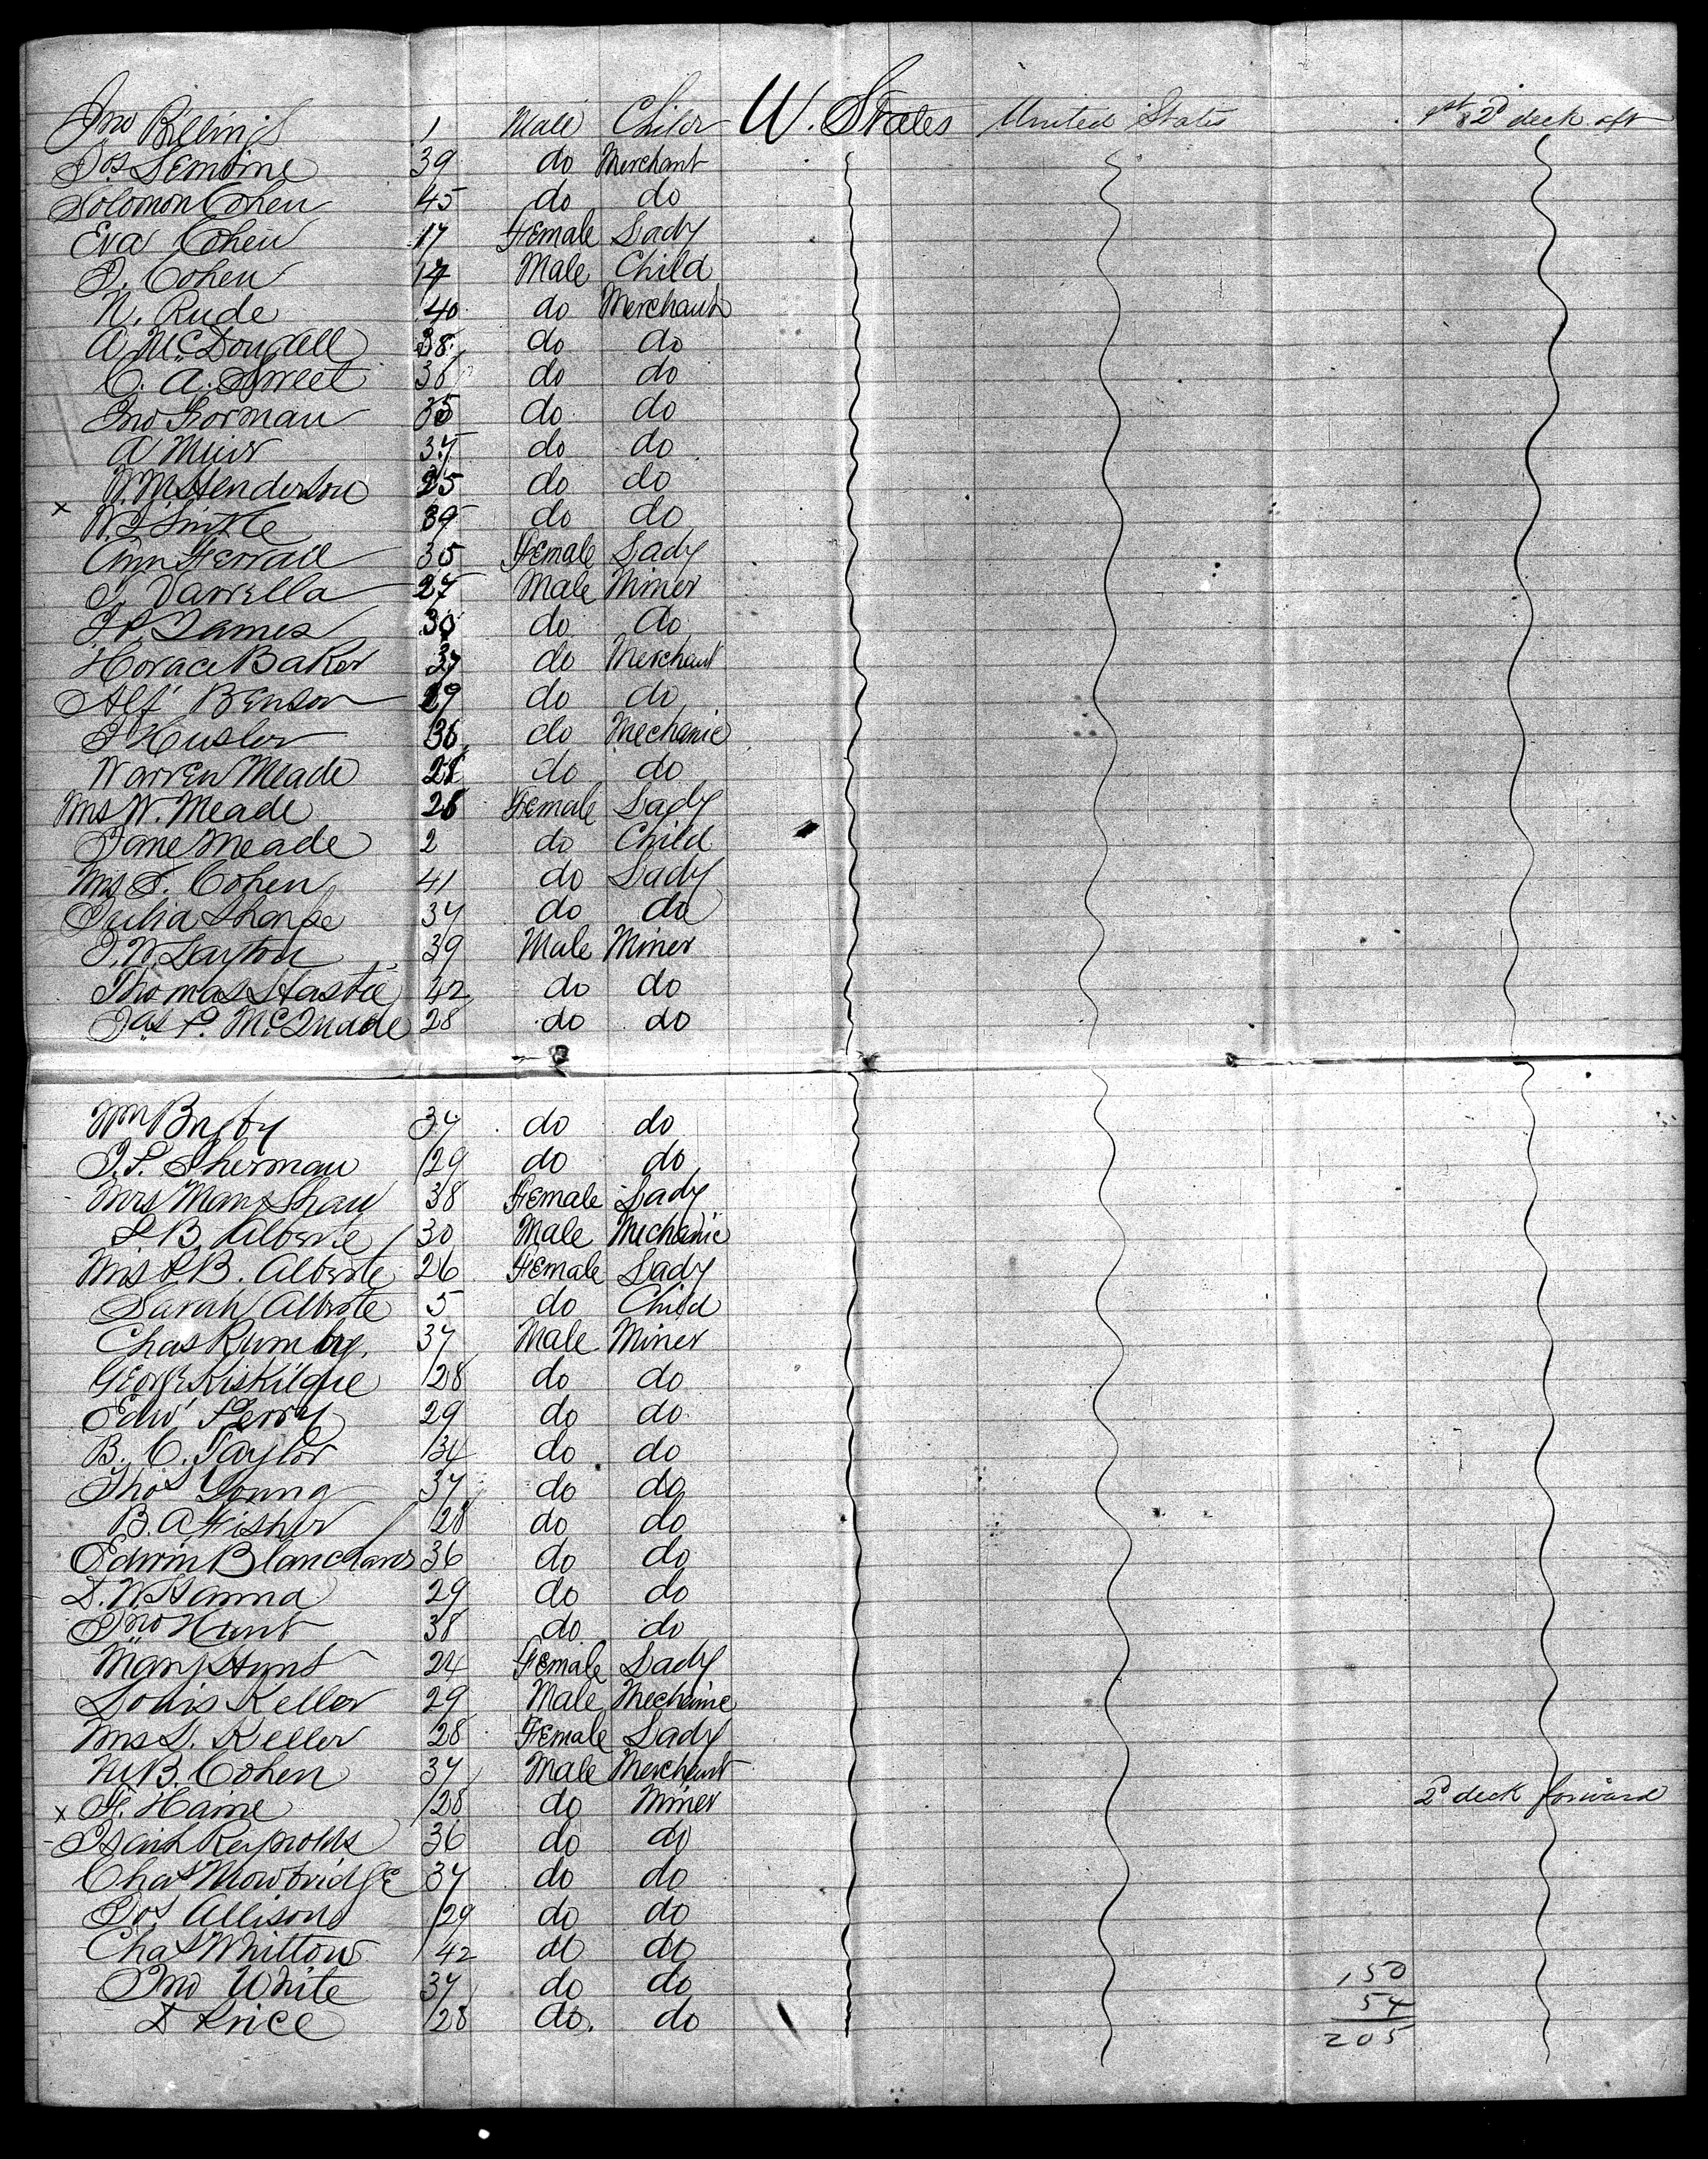 Jno Billings 1 Male Child U. States United States 1st & 2d deck aft
Jos Lemoine 39 do Merchant
Solomon Cohen 45 do do
Eva Cohen 17 Female Lady
J. Cohen 14 Male Child
N. Rude 40 do Merchant
A McDougall 38 do do
C. A. Sweet 36 do do
Jno Gorman 35 do do
A Muir 37 do do
W. M. Henderson 25 do do
x W. S. 39 do do
Ann Ferrall 35 Female Lady
J. Varrella 27 Male Miner
J. P. James 30 do do
Horace Baker 37 do Merchant
Alf Benson 29 do do
J Husler 36 do Mechanic
Warren Meade 28 do do
Mrs W. Meade 28 Female Lady
Jane Meade 2 do Child
Mrs S. Cohen 41 do Lady
Julia Sharpe 37 do do
J. W. Layton 39 Male Miner
Thomas Hastie 42 do do
Jas P. McQuade 28 do do
Wm 37 do do
J. P. Sherman 29 do do
Mrs Mary Shaw 38 Female Lady
P B 30 Male Mechanic
Mrs P. B. 26 Female Lady
Sarah 5 do Child
Chas 37 Male Miner
George 28 do do
Edw Perry 29 do do
B. C. Taylor 34 do do
Thos Young 37 do do
B. A Fisher 28 do do
Edwin Blanchard 36 do do
D. W. Hanna 29 do do
Jno Hunt 38 do do
Mary Hunt 24 Female Lady
Louis Keller 29 Male Mechanic
Mrs L. Keller 28 Female Lady
Hy B. Cohen 37 Male Merchant
x H. Haine 28 do Miner 2d deck forward
Reynolds 36 do do
Chas Mowbridge 37 do do
Jos Allison 29 do do
Chas Whittow 42 do do
Jno White 37 do do 150
D Price 28 do. do 54
205